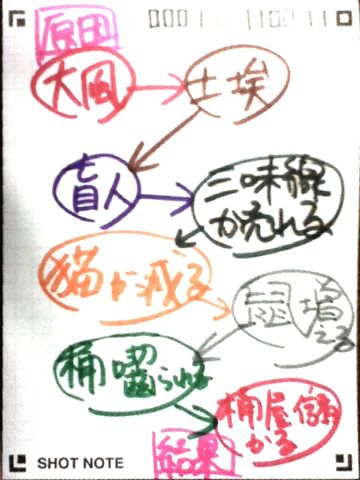 原因
大風
土埃
盲人
三味線
が売れる
猫が減る
鼠増
える
桶噛られる
桶屋儲
かる
結果
SHOT NOTE